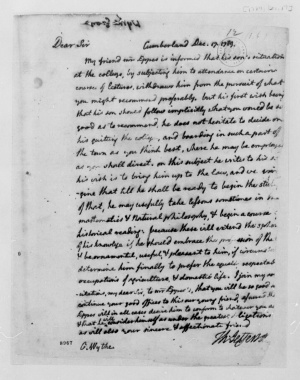 Dear Sir Cumberland Dec. 17. 1789.
My friend mr Eppes is informed that his son's situation
at the college, by subjecting him to attendance on certain
courses of lectures, withdraws him from the pursuit of what
you might recommend preferably. but his first wish being
that his son should follow simplicitly what you would be so
good as to recommend, he does not hesitate to decide on
his quitting the college, and boarding in such a part of
the town as you think best, where he may be employed
as you shall direct. on this subject he writes to his s
his wish is to bring him up to the law, and we
gine that till he shall be ready to begin the stu
of that, he may usefully take lessons sometimes in
mathematics & Natural Philosophy, & begin a course
historical reading. because these will extend the sphere
of his knowledge if he should embrace the
be ornamental, useful, & pleasant to him, if
determine him finally to prefer the
occupations of agriculture & domestic life. I join my
to mr Eppes's, that you will be so good as
continue your good offices to this our young friend, assured that
Eppes will in all cases desire him to conform to
& that he will consider himself as under the greatest obligations
as will also your sincere & affectionate friend
Th: Jefferson
G. Wythe
8057